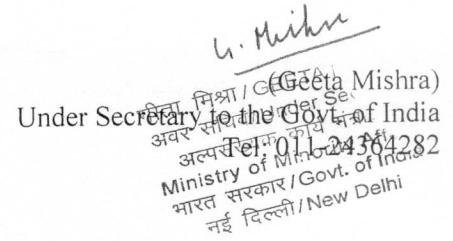 G. Mishra
(Geeta Mishra)
Under Secretary to the Govt. of India
Tel: 011-24364282
गीता मिश्रा / GEETA
अवर सचिव / Under Sec
अल्पसंख्यक कार्य मंत्रा
Ministry of Minority Aff
भारत सरकार / Govt. of India
नई दिल्ली / New Delhi